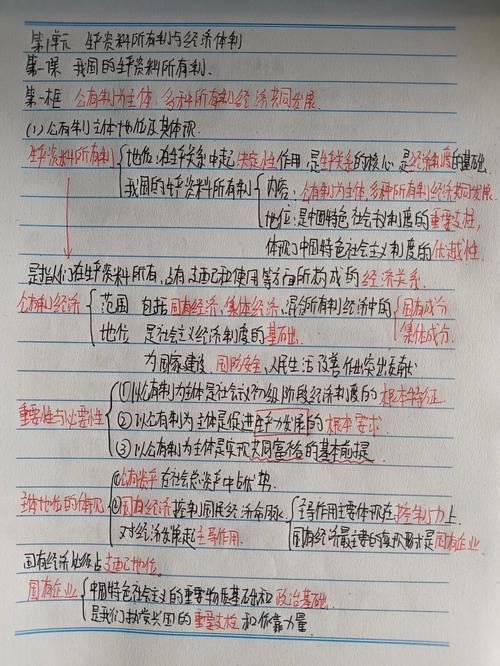 第1单元 生产资料所有制与经济体制
第一课 我国的生产资料所有制.
第一框 公有制为主体,多种所有制经济共同发展
(1)公有制主体地位及其体现.
生产资料所有制 地位:在生产关系中起决定性作用,是生产关系的核心,是经济制度的基础.
我国的生产资料所有制 内容:公有制为主体,多种所有制经济共同发展.
地位:是中国特色社会主义制度的重要支柱,
体现了中国特色社会主义制度的优越性.
是指人们在生产资料所有、占有、支配和使用等方面所构成的经济关系.
公有制经济 范围 包括国有经济、集体经济、混合所有制经济中的 国有成分
集体成分.
地位 是社会主义经济制度的基础.
为国家建设、国防安全、人民生活改善作出突出贡献
重要性与必要性 ①以公有制为主体是社会主义初级阶段经济制度的根本特征
②以公有制为主体是促进生产力发展的根本要求
③以公有制为主体是实现共同富裕的基本前提
主体地位的体现 ①公有资产在社会总资产中占优势.
②国有经济控制国民经济命脉 主导作用主要体现在控制力上.
对经济发展起主导作用. 国有经济最主要的实现形式是国有企业.
国有经济处于占支配地位.
国有企业 中国特色社会主义的重要物质基础和政治基础.
是我们执党兴国的重要支柱和依靠力量.